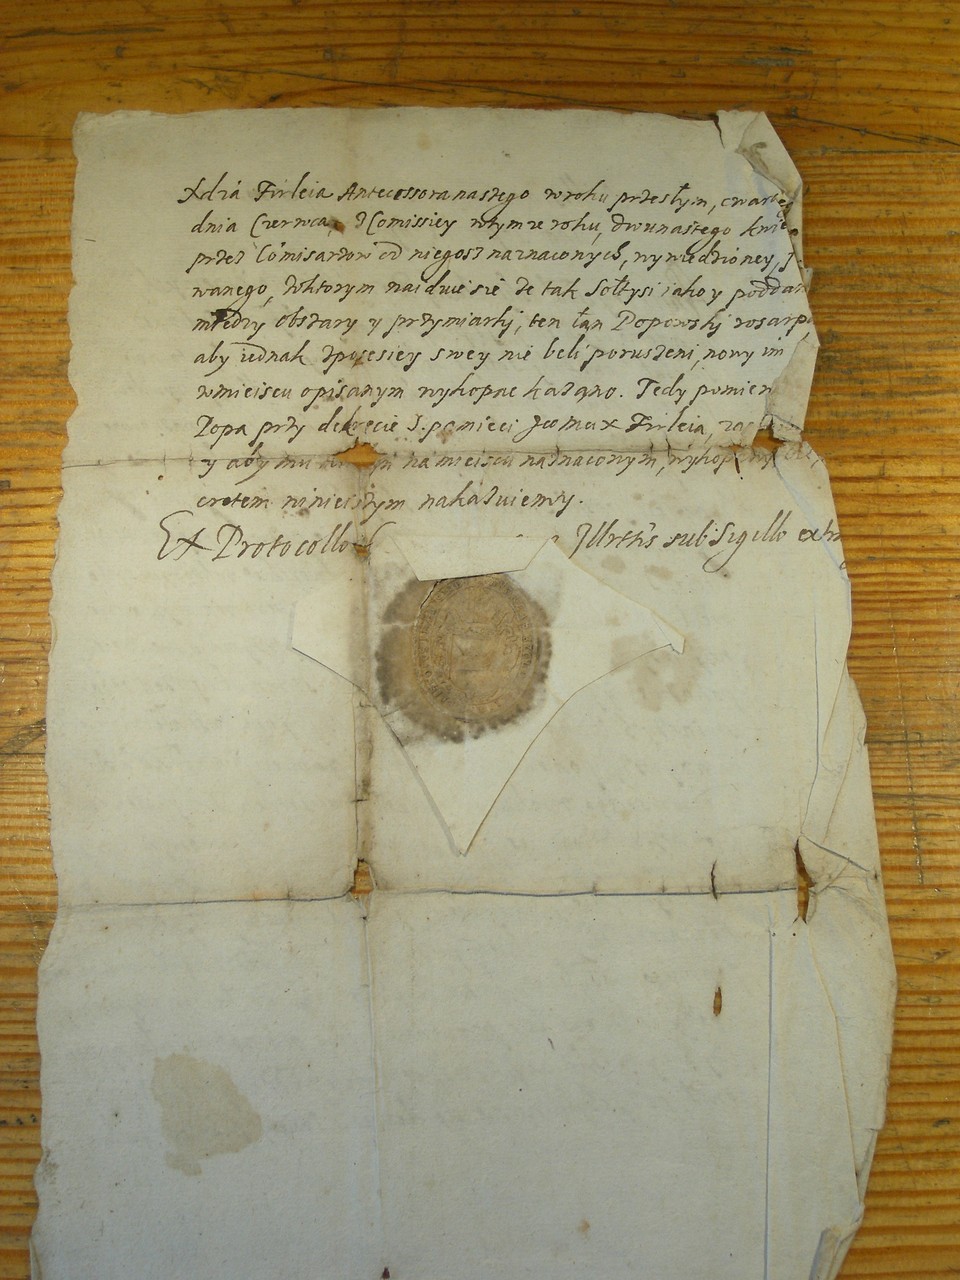 Xdzá Firleia Antecessora naszego w roku przeszłym, czwarte
dnia Czerwca, z Comissiey w tymze roku, dwunastego kwie
przez Comisarzow od niegosz naznaconych, wywiedzioney,
wanego, w ktorym naiduie sie ze tak Sołtysi iako y poddan
miedzy obszary y przymiarki, ten łan Popowski rosarp
aby iednak z posesiey swey nie beli poruszeni, nowy im
w mieiscu opisanym wykopac kazano. Tedy pomien
Popa przy dekrecie S. pamieci Jeo mci X Firleia,
y aby mu na mieiscu naznaconym, wykop
cretem ninieiszym nakazuiemy.
Ex Protocollo Illrttis sub Sigillo extr